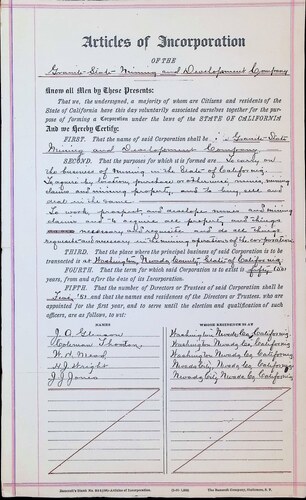 Articles of Incorporation
OF THE
Granite State Mining and Development Company
Know all Men by These Presents:
That we, the undersigned, a majority of whom are Citizens and residents of the
State of California have this day voluntarily associated ourselves together for the pur-
pose of forming a Corporation under the laws of the STATE OF CALIFORNIA
And we Hereby Certify:
FIRST. That the name of said Corporation shall be Granite State
Mining and Development Company
SECOND. That the purposes for which it is formed are To carry on
the business of mining in the State of California.
To acquire by location, purchase or otherwise, mines, mining
claims and mining property, and to buy, sell and
deal in the same.
To work, prospect and develope mines and mining
claims and to acquire all property and things
necessary and requisite and do all things
requisite and necessary in the mining operations of the corporation
THIRD. That the place where the principal business of said Corporation is to be
transacted is at Washington, Nevada County, State of California
FOURTH. That the term for which said Corporation is to exist is fifty (50)
years, from and after the date of its Incorporation.
FIFTH. That the number of Directors or Trustees of said Corporation shall be
(5), and that the names and residences of the Directors or Trustees, who are
appointed for the first year, and to serve until the election and qualification of such
officers, are as follows, to wit:
NAMES WHOSE RESIDENCE IS AT
J. A. Washington Nevada Co, California
Coleman Washington Nevada Co, California
W. H. Mead Washington Nevada Co, California
H. J. Wright Nevada City, Nevada Co, California
J. J. Jones Nevada City, Nevada Co, California
Articles of Incorporation. The Bancroft Company, S. F.